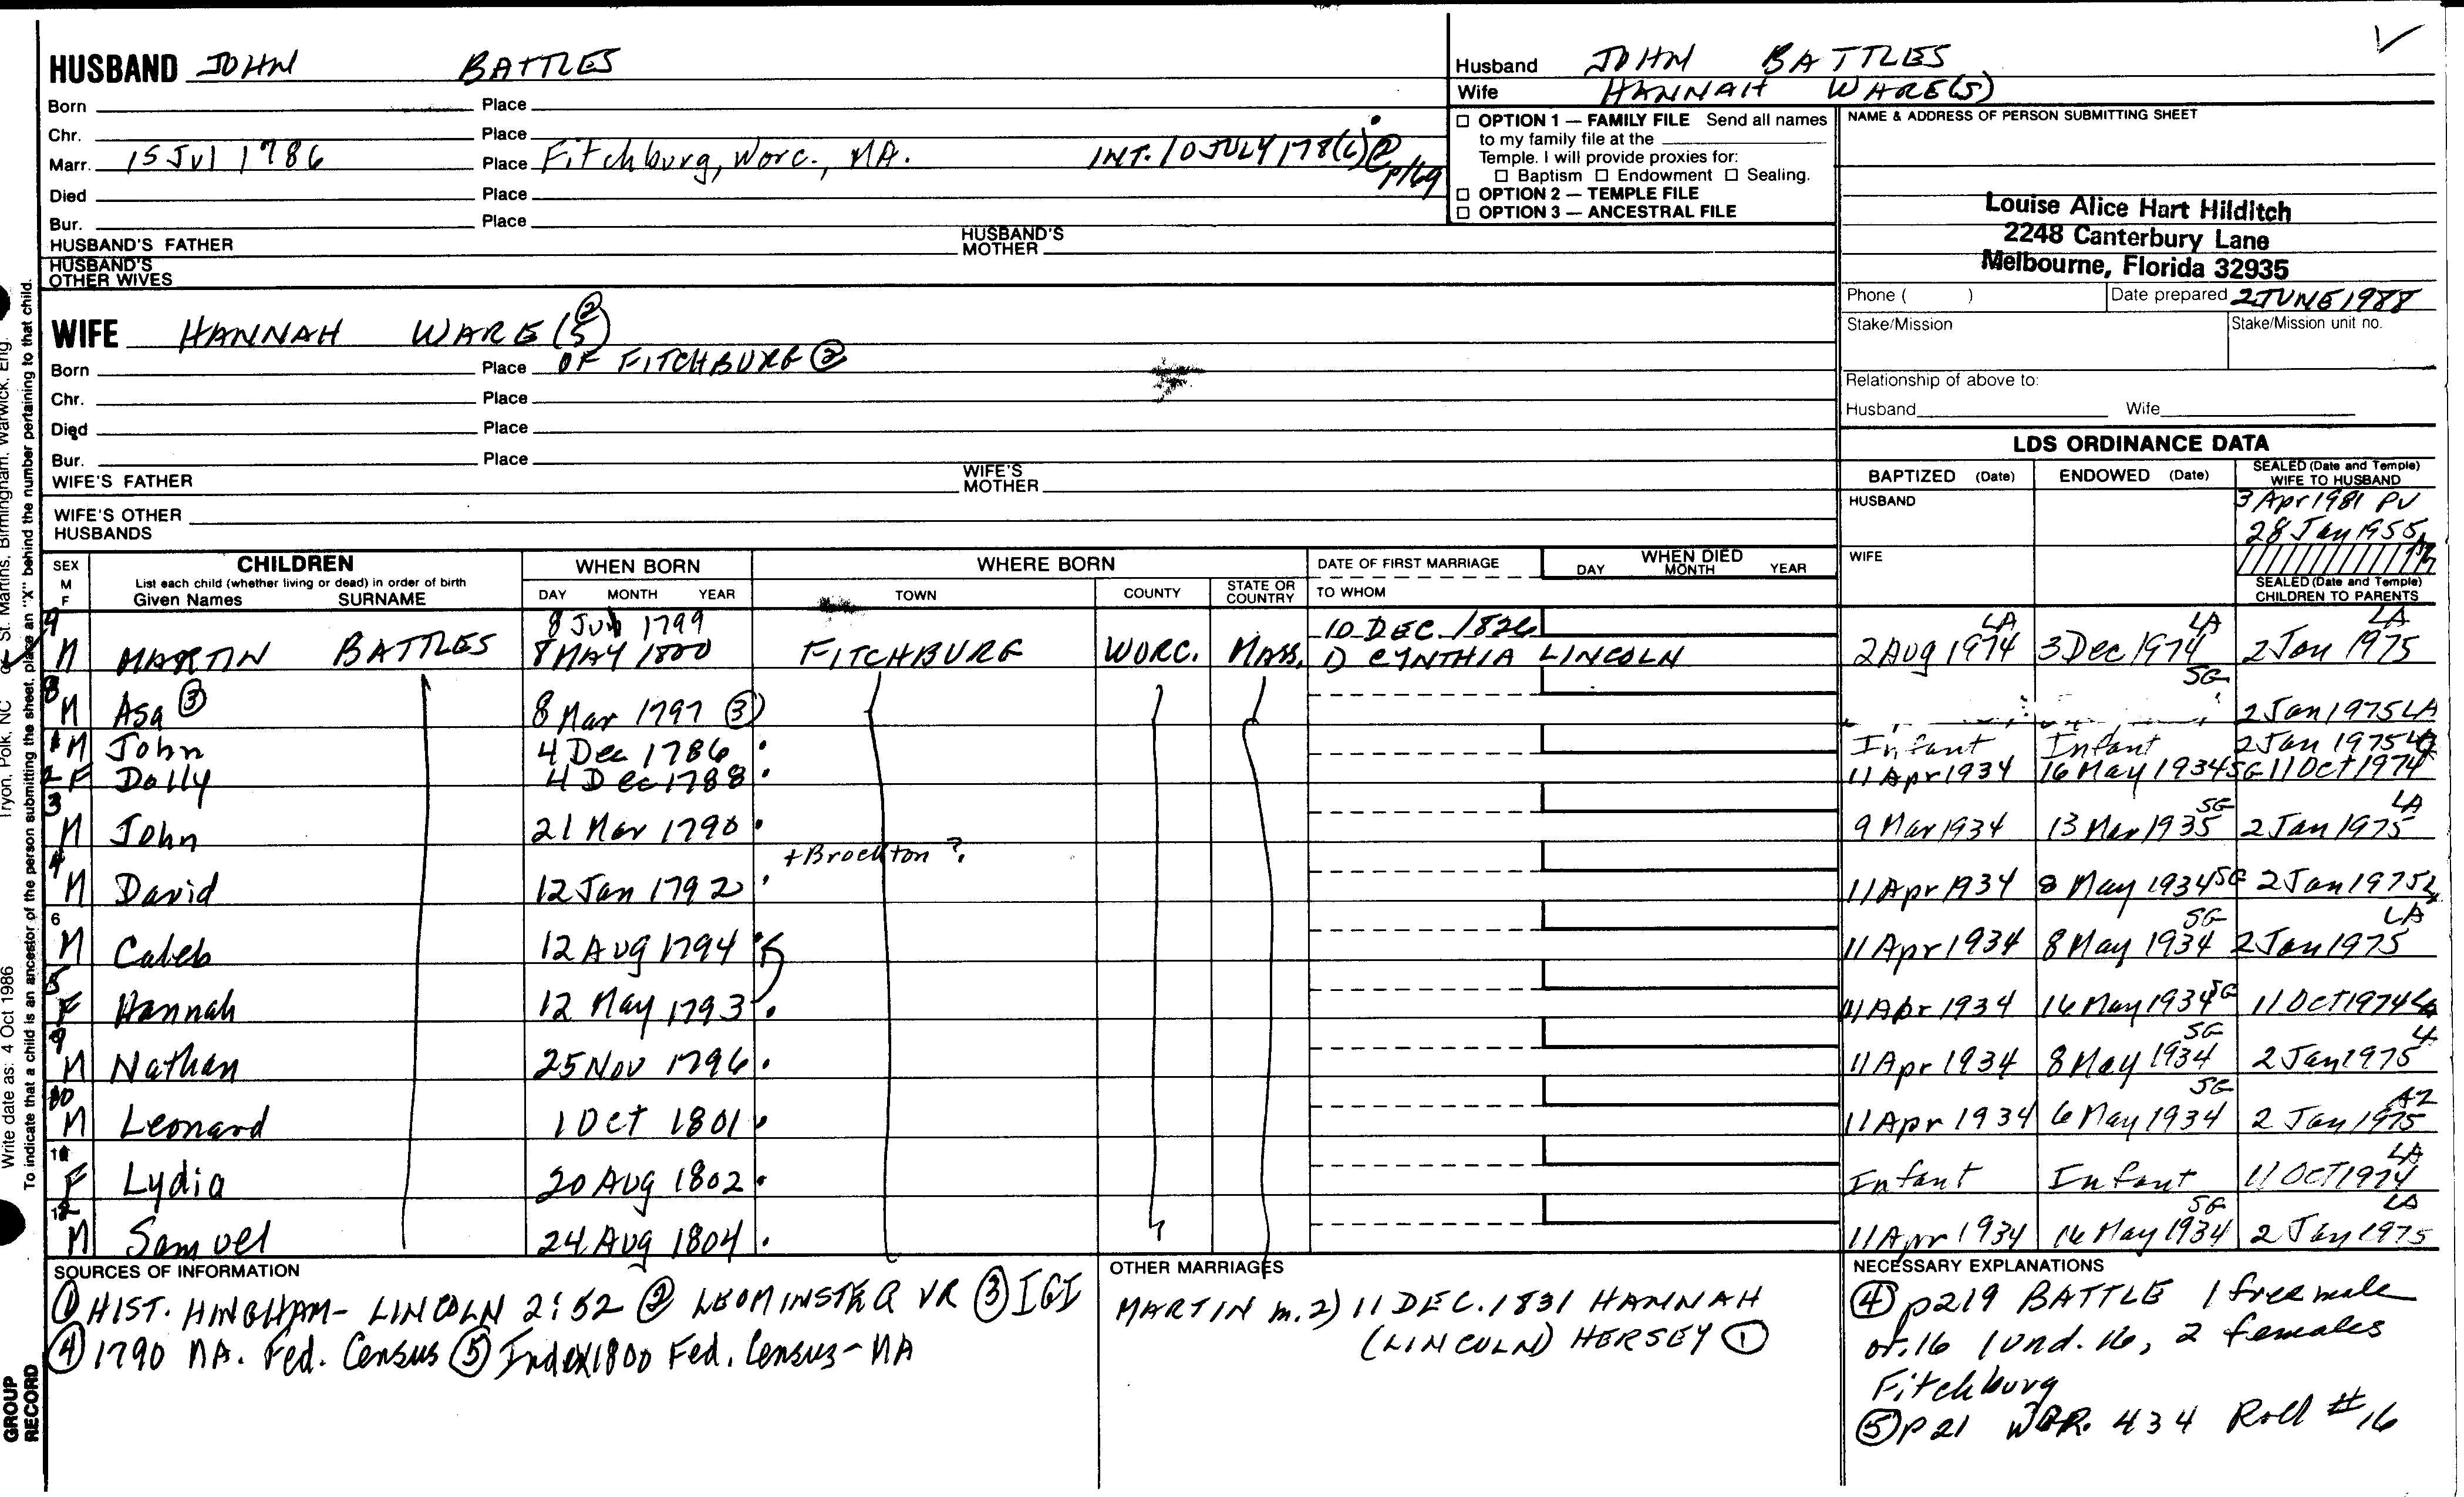 HUSBAND JOHN BATTLES
Born Place
Chr. Place
Marr. 15 Jul 1786 Place Fitchburg, Worc., MA. INT. 10 JULY 178(6) ② p169
Died Place
Bur. Place
HUSBAND'S FATHER HUSBAND'S MOTHER
HUSBAND'S OTHER WIVES
WIFE HANNAH WARE(S) ②
Born Place OF FITCHBURG ②
Chr. Place
Died Place
Bur. Place
WIFE'S FATHER WIFE'S MOTHER
WIFE'S OTHER HUSBANDS
Husband JOHN BATTLES
Wife HANNAH WARE(S)
☐ OPTION 1 — FAMILY FILE Send all names
to my family file at the
Temple. I will provide proxies for:
☐ Baptism ☐ Endowment ☐ Sealing.
☐ OPTION 2 — TEMPLE FILE
☐ OPTION 3 — ANCESTRAL FILE
NAME & ADDRESS OF PERSON SUBMITTING SHEET
Louise Alice Hart Hilditch
2248 Canterbury Lane
Melbourne, Florida 32935
Phone ( ) Date prepared 2 JUNE 1988
Stake/Mission Stake/Mission unit no.
Relationship of above to:
Husband Wife
LDS ORDINANCE DATA
BAPTIZED (Date) ENDOWED (Date) SEALED (Date and Temple) WIFE TO HUSBAND
HUSBAND 3 Apr 1981 PV
28 Jan 1955
WIFE
SEALED (Date and Temple) CHILDREN TO PARENTS
SEX M F CHILDREN WHEN BORN WHERE BORN DATE OF FIRST MARRIAGE WHEN DIED
List each child (whether living or dead) in order of birth
Given Names SURNAME DAY MONTH YEAR TOWN COUNTY STATE OR COUNTRY TO WHOM DAY MONTH YEAR
9 8 Jun 1799 10 DEC. 1826 LA LA LA
M MARTIN BATTLES 8 MAY 1800 FITCHBURG WORC. MASS. 1) CYNTHIA LINCOLN 2 Aug 1974 3 Dec 1974 2 Jan 1975
8 M Asa ③ 8 Mar 1797 ③ SG 2 Jan 1975 LA
1 M John 4 Dec 1786 Infant Infant 2 Jan 1975 LA
2 F Dolly 4 Dec 1788 11 Apr 1934 16 May 1934 SG 11 Oct 1974
3 M John 21 Mar 1790 9 Mar 1934 13 Mar 1935 SG 2 Jan 1975 LA
+Brockton ?
4 M David 12 Jan 1792 11 Apr 1934 8 May 1934 SG 2 Jan 1975 L
6 M Caleb 12 Aug 1794 11 Apr 1934 8 May 1934 SG 2 Jan 1975 LA
5 F Hannah 12 May 1793 11 Apr 1934 16 May 1934 SG 11 OCT 1974 LA
9 M Nathan 25 Nov 1796 11 Apr 1934 8 May 1934 SG 2 Jan 1975
10 M Leonard 1 Oct 1801 11 Apr 1934 6 May 1934 SG 2 Jan 1975 AZ
11 F Lydia 20 Aug 1802 Infant Infant 11 OCT 1974 LA
12 M Samuel 24 Aug 1804 11 Apr 1934 16 May 1934 SG 2 Jan 1975 LA
SOURCES OF INFORMATION
① HIST. HINGHAM- LINCOLN 2:52 ② LEOMINSTER VR ③ IGI
④ 1790 MA. Fed. Census ⑤ Index 1800 Fed. Census - MA
OTHER MARRIAGES
MARTIN m. 2) 11 DEC. 1831 HANNAH
(LINCOLN) HERSEY ①
NECESSARY EXPLANATIONS
④ p219 BATTLE 1 free male
of. 16 1 und. 16, 2 females
Fitchburg
⑤ p 21 WOR. 434 Roll # 16
Tryon, Polk, NC or St. Martins, Birmingham, Warwick, Eng.
Write date as: 4 Oct 1986
To indicate that a child is an ancestor of the person submitting the sheet, place an "X" behind the number pertaining to that child.
GROUP
RECORD